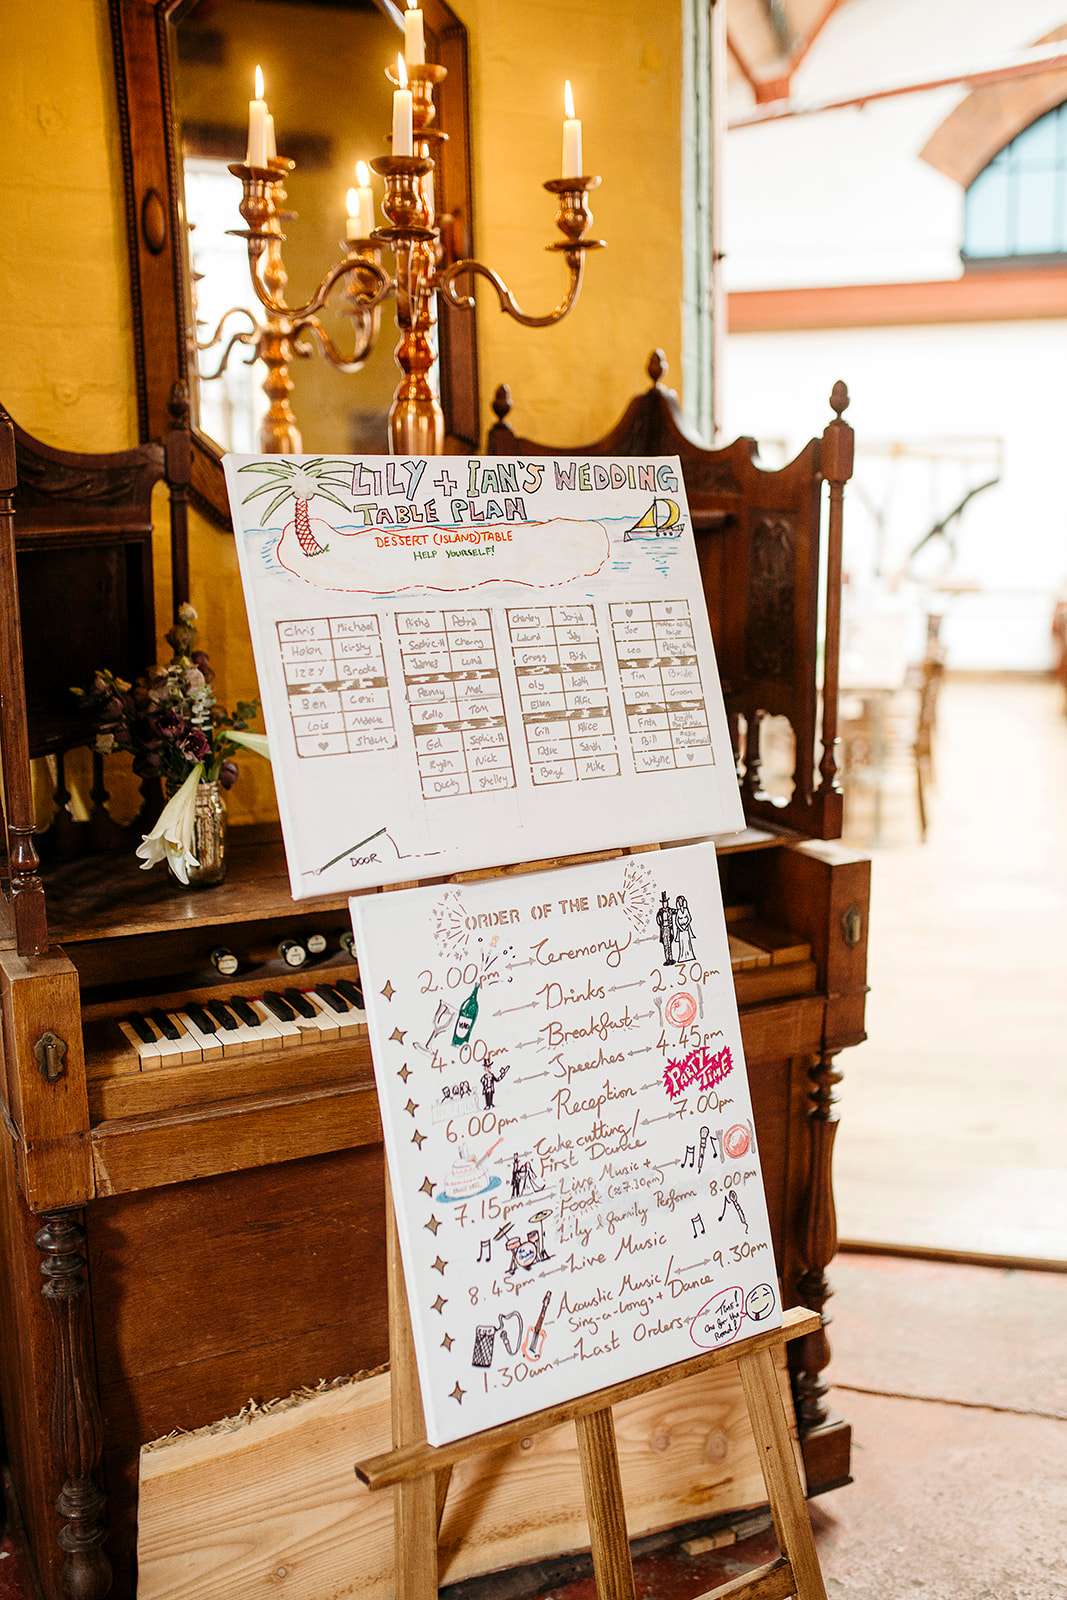 LILY + IAN'S WEDDING
TABLE PLAN
DESSERT (ISLAND) TABLE
HELP YOURSELF!
Chris Michael
Helen Kirsty
IZZY Brooke
Ben Lexi
Lois
♥ Shaun
Risha Petra
Sophie.H Charry
James Lund
Penny Mol
Rollo Tom
Ed Sophie.H
Ryan Nick
Ducky Shelley
Charley
Jay
Gregg Bish
oly Kath
Ellen Alfie
Gill Alice
Dave Sarah
Beryl Mike
♥ ♥
Joe
Leo
Tim Bride
Den Groom
Finn
Bill
Whyne ♥
DOOR
ORDER OF THE DAY
2.00pm Ceremony
Drinks 2.30pm
4.00pm Breakfast
Speeches 4.45pm
6.00pm Reception PARTY TIME
Cake cutting/ 7.00pm
First Dance
7.15pm Live Music +
Food (≈7.30pm)
Lily & family Perform 8.00pm
8.45pm Live Music
Acoustic Music/ 9.30pm
Sing-a-longs + Dance
1.30am Last Orders
Time!
One for the
Road?